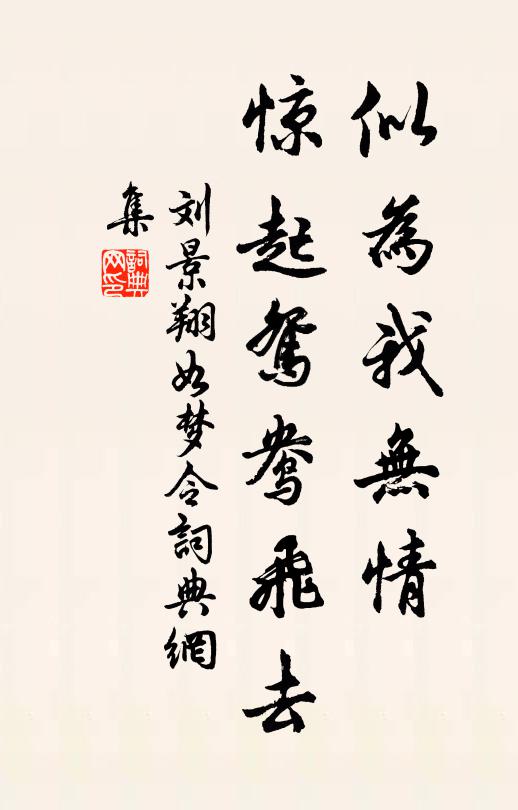 似為我無情
惊起鴛鴦飛去
刘景翔如梦令詞典網
集
詞典
网印